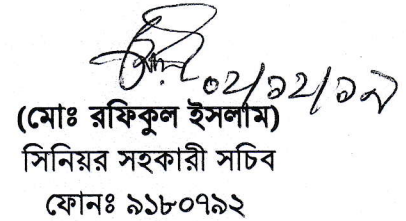 ০২/১২/১৯
(মোঃ রফিকুল ইসলাম)
সিনিয়র সহকারী সচিব
ফোনঃ ৯১৮০৭৯২